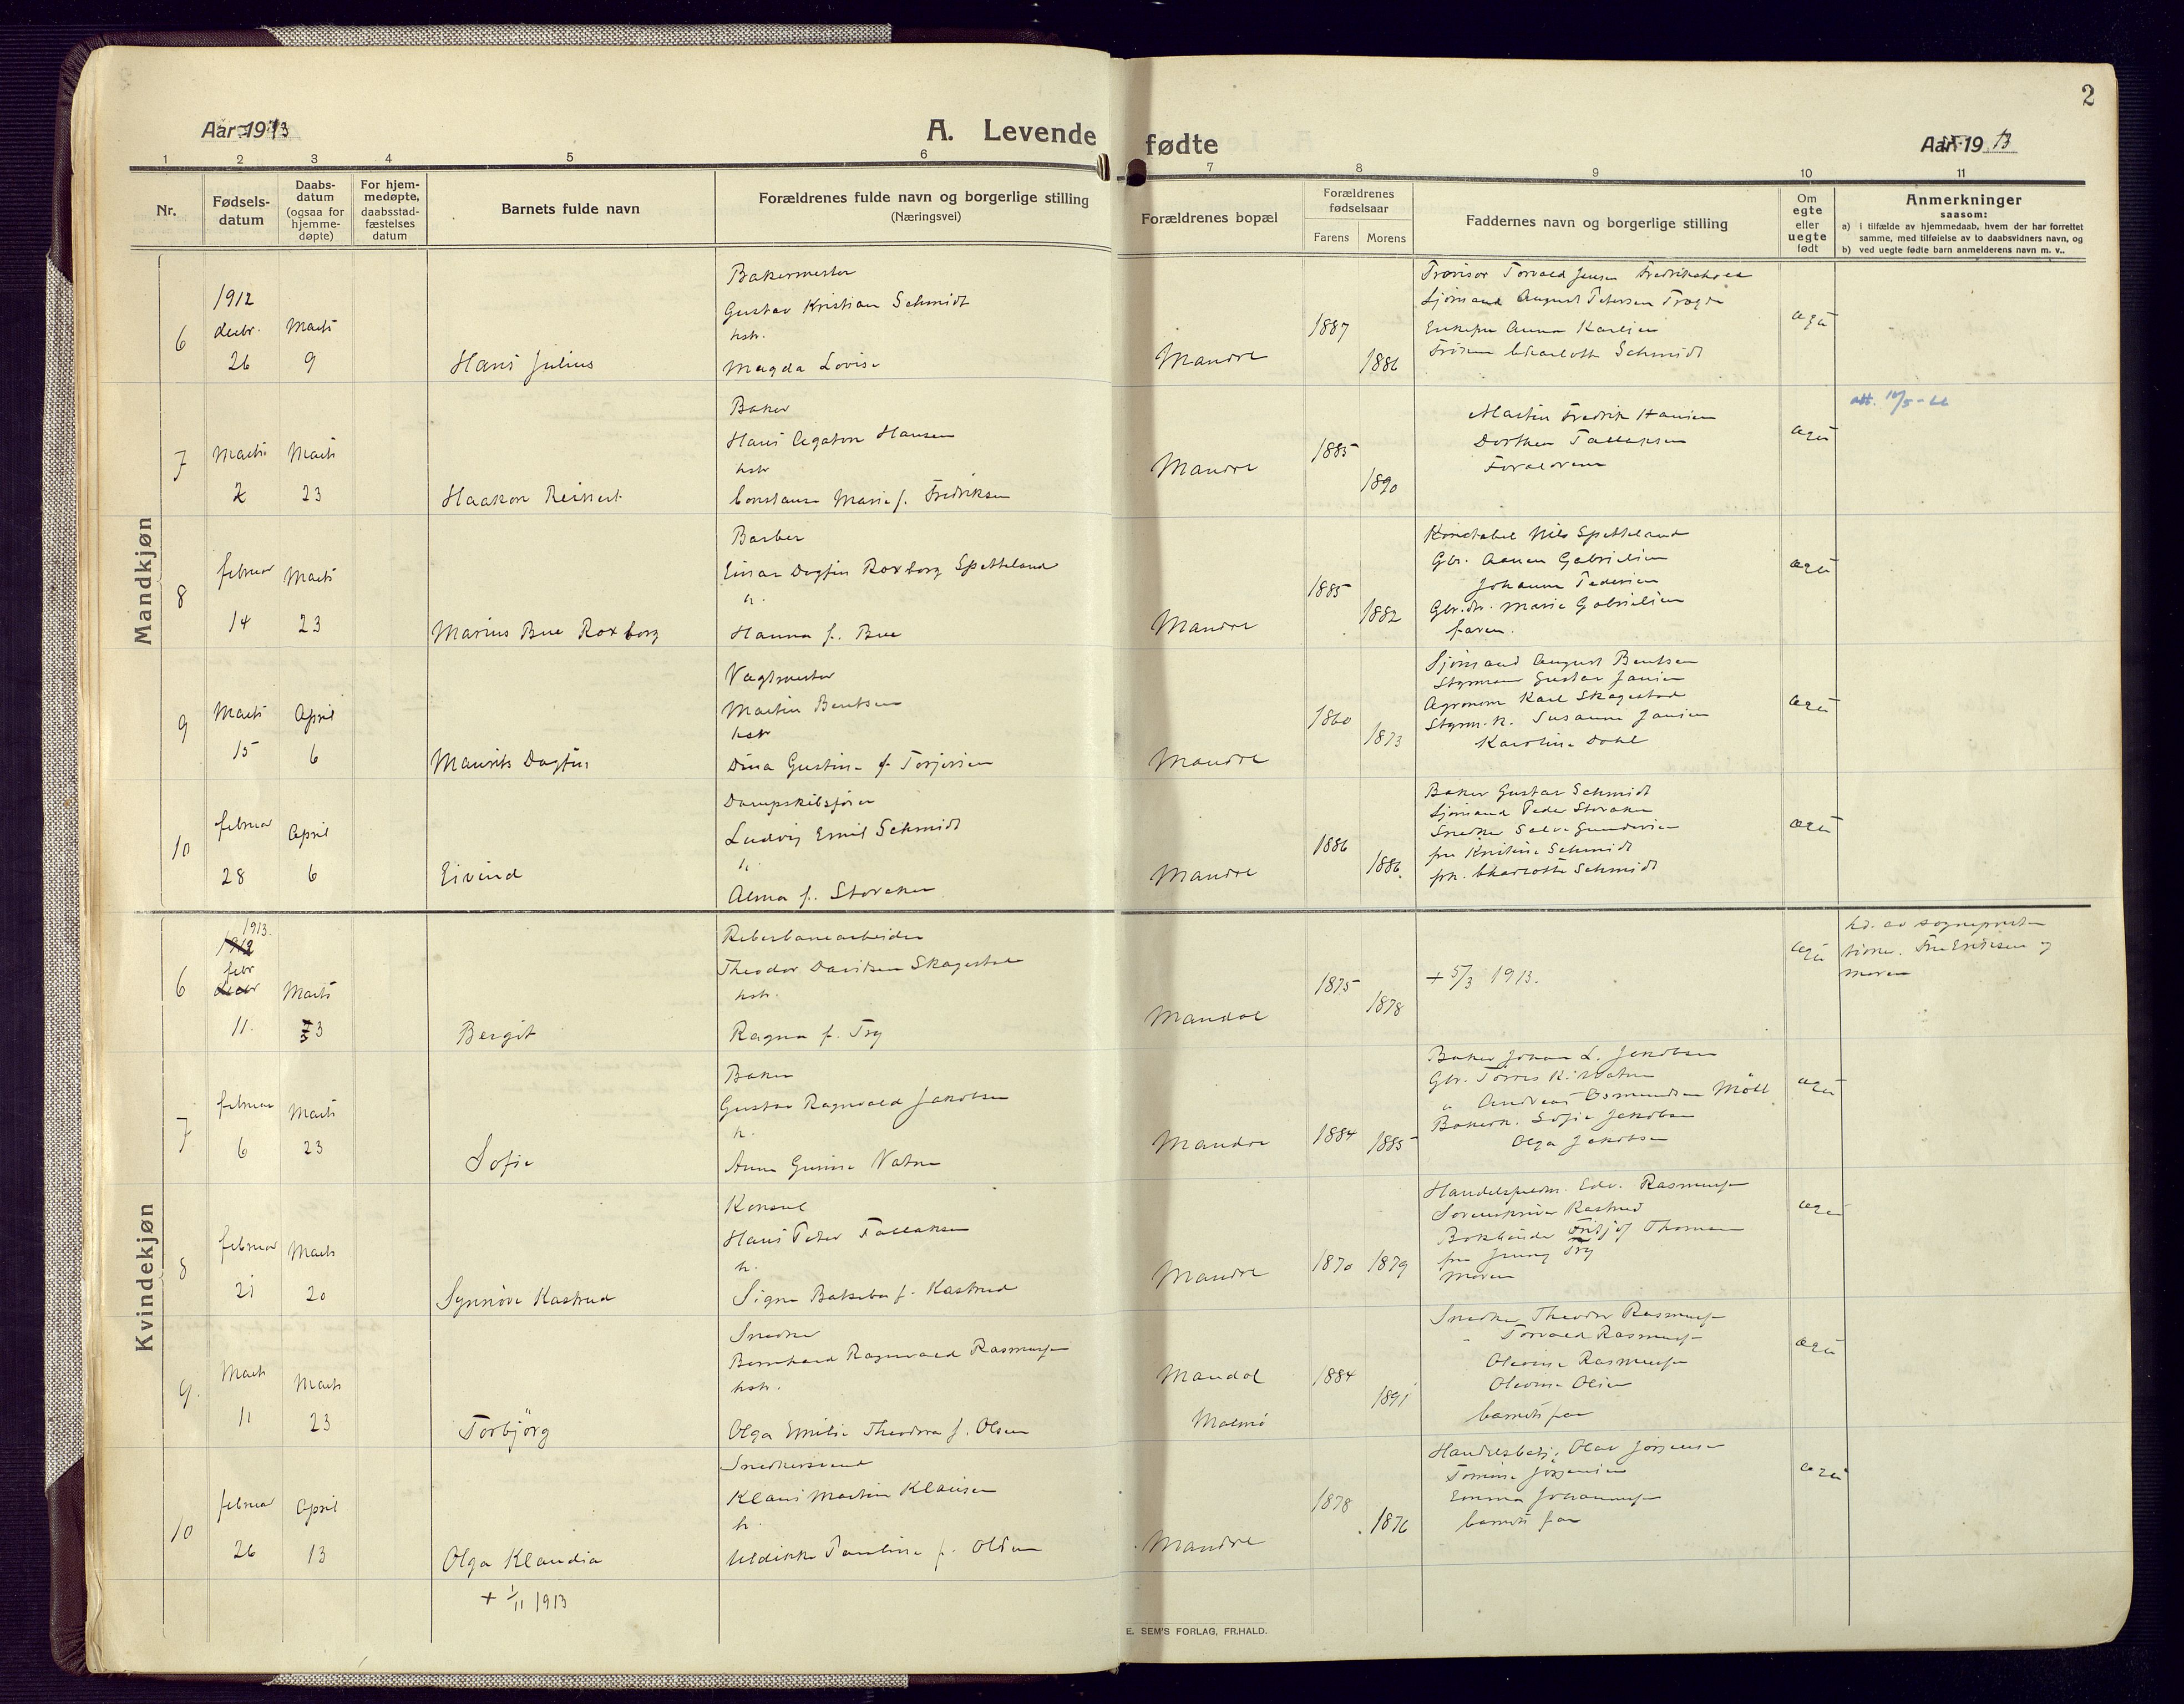 2
Aar 1913
A. Levende fødte
Aar 1913
1 2 3 4 5 6 7 8 9 10 11
Nr.
Fødsels-datum
Daabs-datum (ogsaa for hjemme-døpte)
For hjem-medøpte, daabsstad-fæstelses datum
Barnets fulde navn
Forældrenes fulde navn og borgerlige stilling
(Næringsvei)
Forældrenes bopæl
Forældrenes fødselsaar
Farens Morens
Faddernes navn og borgerlige stilling
Om egte eller uegte født
Anmerkninger
saasom:
a) i tilfælde av hjemmedaab, hvem der har forrettet
samme, med tilføielse av to daabsvidners navn, og
b) ved uegte fødte barn anmelderens navn m. v..
Mandkjøn
6
1912
decbr. 26
Marts 9
Hans Julius
Bakermester
Gustav Kristian Schmidt
hstr.
Magda Lovise
Mandal
1887
1886
Provisor Torvald Jensen Fredrikshald
Sjömand August Petersen
Enkefru Anna Karlsen
Fröken Charlotte Schmidt
ægte
7
Marts 2
Marts 23
Haakon Reinert
Baker
Hans Agaton Hansen
hstr
Constanse Marie f. Fredriksen
Mandal
1885
1890
Martin Fredrik Hansen
Dorthea Tallaksen
Forældrene
ægte
att. 10/5-66
8
februar 14
Marts 23
Marius Bue Roxborg
Barber
Einar Dagfin Roxborg Spetteland
h.
Hanna f. Bue
Mandal
1885
1882
Konstabel Nils Spetteland
Gbr. Aanen Gabrielsen
Johanne Pedersen
Gbr.dr. Marie Gabrielsen
faren.
ægte
9
Marts 15
April 6
Maurits Dagfin
Vagtmester
Martin Bentsen
hstr
Dina Gustine f. Torjersen
Mandal
1860
1873
Sjömand August Bentsen
Styrmann Gustav Jansen
Agronom Karl Skagestad
Styrm.k. Susanne Jansen
Karoline Dahl
ægte
10
februar 28
April 6
Eivind
Dampskibsförer
Ludvig Emil Schmidt
h.
Alma f. Storaker
Mandal
1886
1886.
Baker Gustav Schmidt
Sjömand Peder Storaker
Snedker Salve Gundersen
fru Kristine Schmidt
frk. Charlotte Schmidt
ægte
Kvindekjøn
6
1913.
1912
febr
decbr
11.
Marts 3
Bergit
Reberbanearbeider
Theodor Davidsen Skagestad
hstr.
Ragna f. Try
Mandal
1875
1878
+ 5/3 1913.
ægte
hd. av sogneprest
Fru Eriksen og
moren
7
februar 6
Marts 23
Sofie
Baker
Gustav Ragnvald Jakobsen
h.
Anna Gurine Vatne
Mandal
1884
1885
Baker Johan L. Jakobsen
Gbr. Torres K. Vatne
" Andreas Osmundsen Möll
Bakerk. Sofie Jakobsen
Olga Jakobsen
ægte
8
februar 21
Marts 20
Synnöve Kastrud
Konsul
Hans Peter Tallaksen
h.
Signe Batseba f. Kastrud
Mandal
1870 1879
Handelsfuldm. Edv. Rasmussen
Sorenskriver Kastrud
Bokbinder Fritjof Thomassen
fru Jenny Try
Moren
ægte
9.
Marts 11
Marts 23
Torbjörg
Snedker
Bernhard Ragnvald Rasmussen
hstr.
Olga Emilie Theodora f. Olsen
Mandal
Malmö
1884
1891
Snedker Theodor Rasmussen
" Torvald Rasmussen
Olevine Rasmussen
Olevine Olsen
barnets far
ægte
10
februar 26
April 13
Olga Klaudia
+ 1/11 1913
Snedkersvend
Klaus Martin Klausen
h.
Uldikke Pauline f. Olsen
Mandal
1878
1876
Handelsbetj. Olav Jörgensen
Tomine Jörgensen
Emma Johannessen
barnets far
ægte
E. SEM'S FORLAG, FR.HALD.